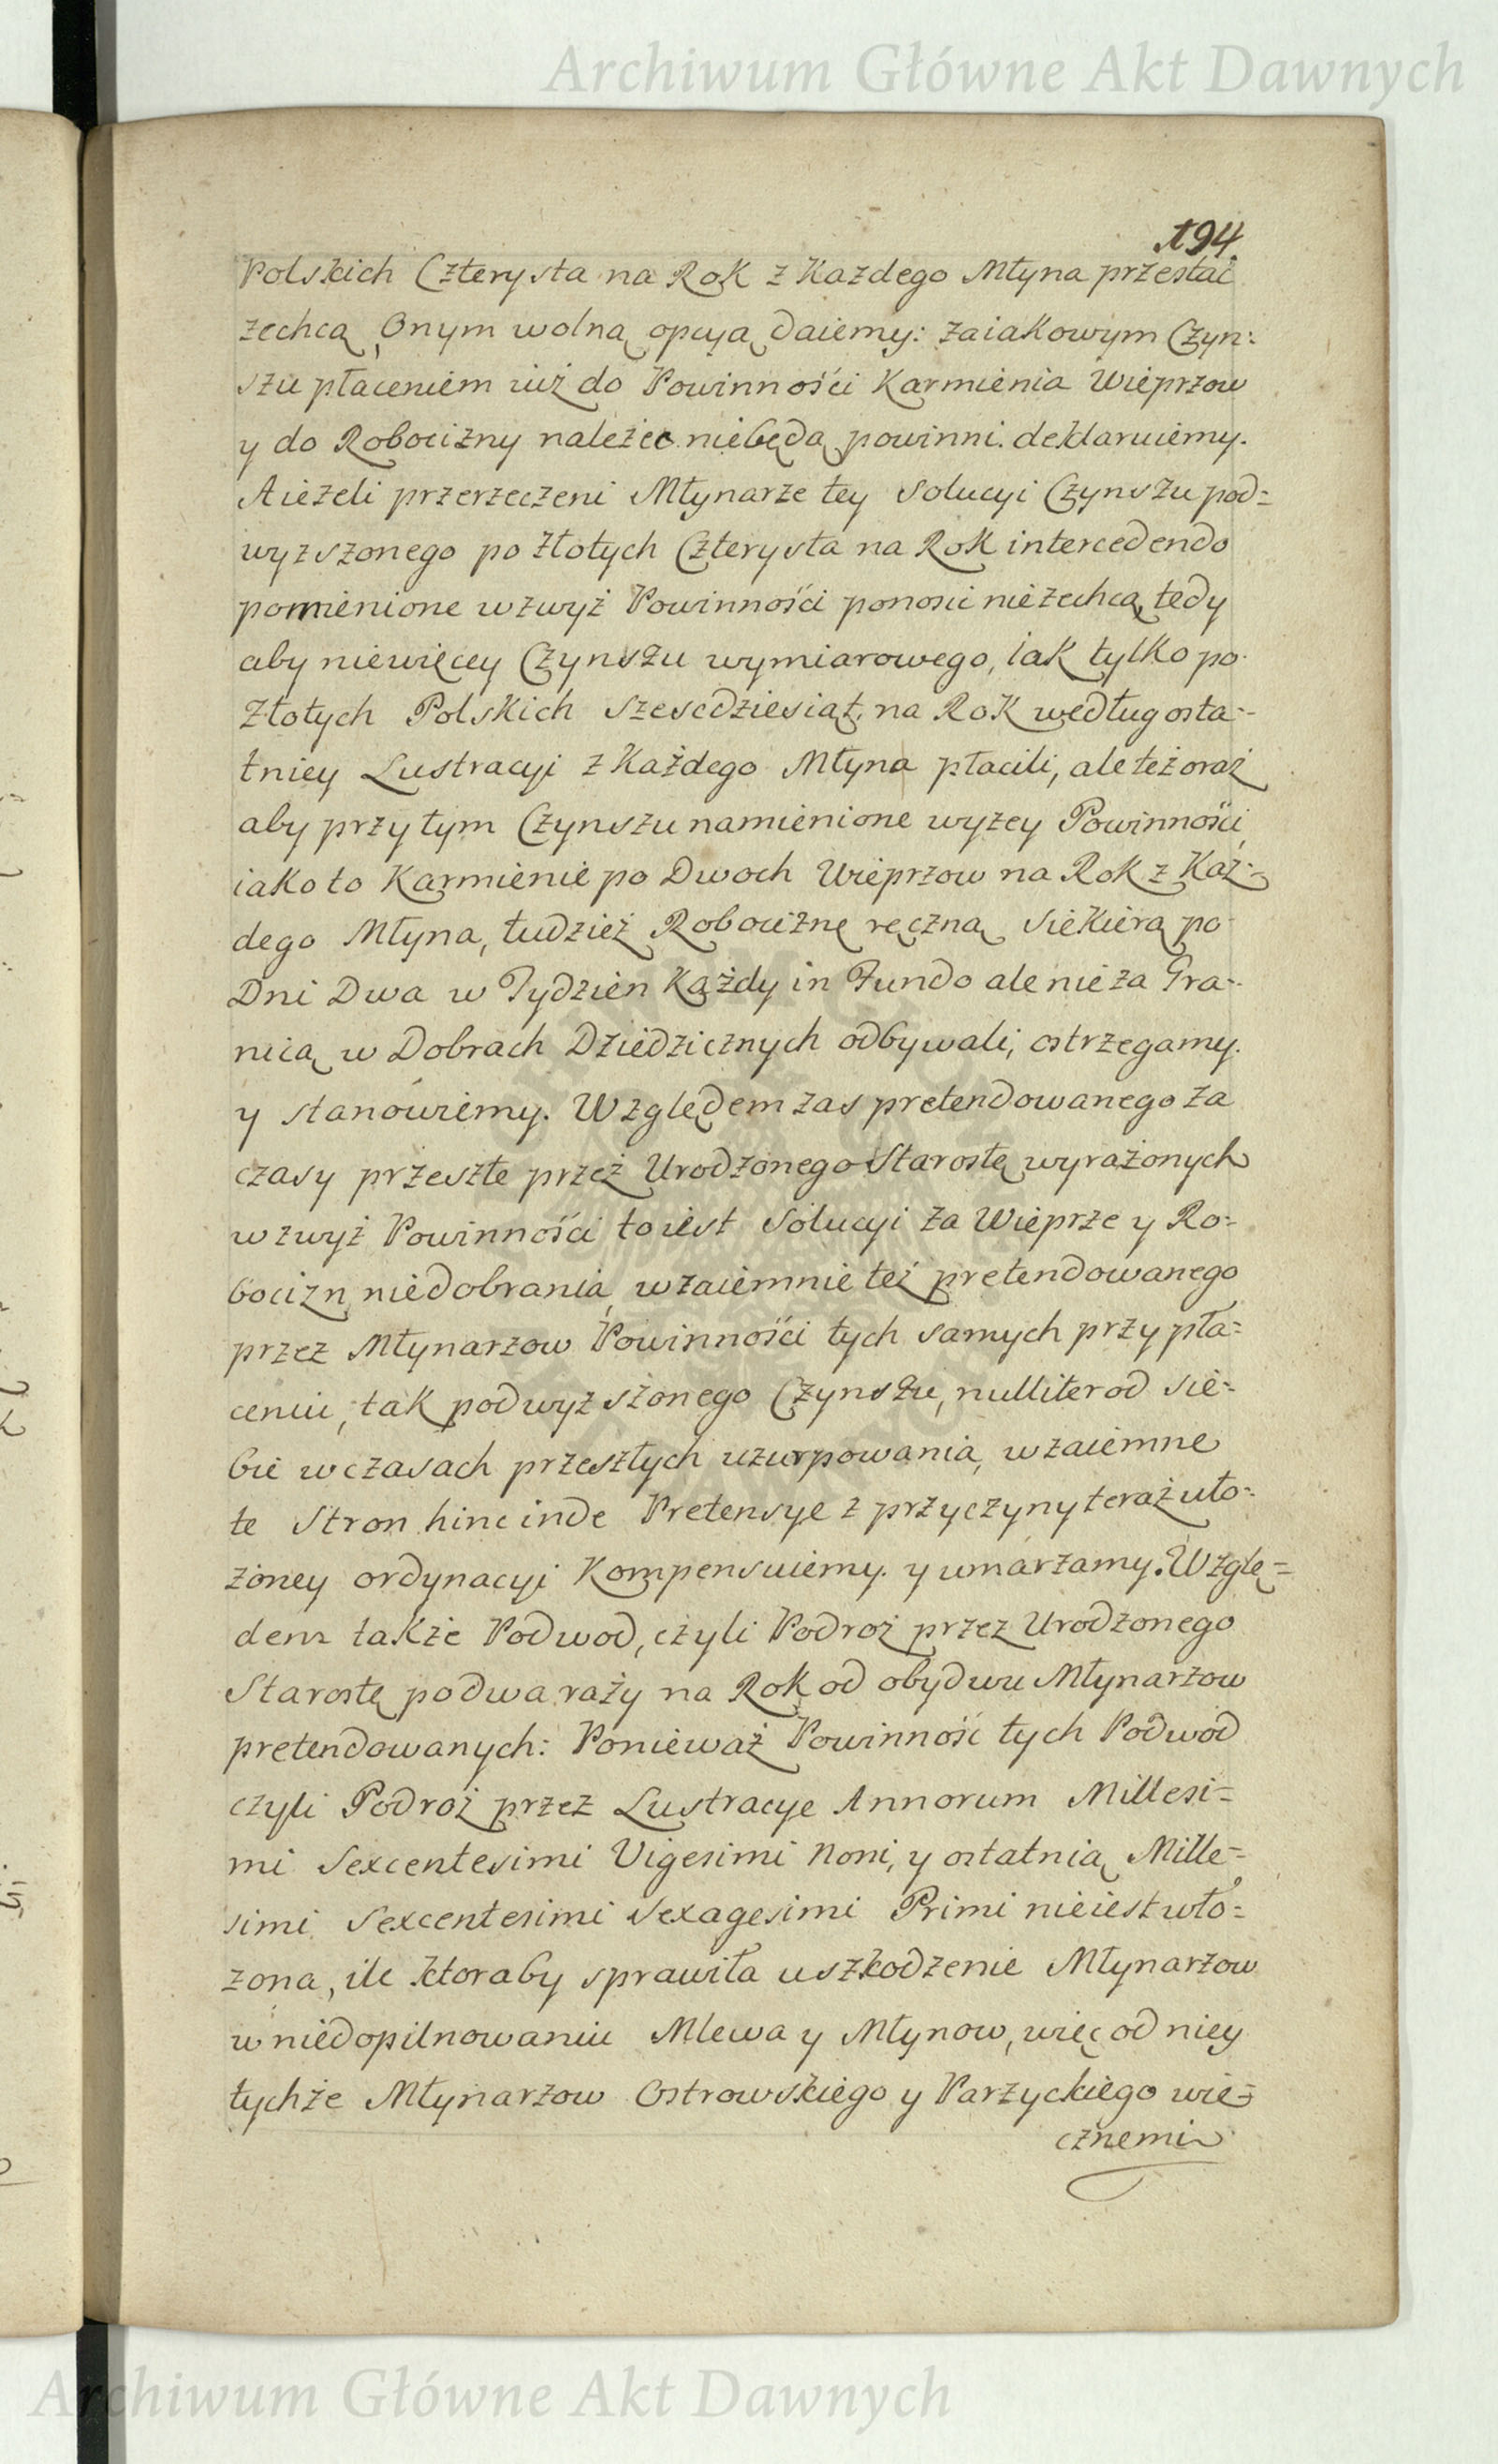 Archiwum Główne Akt Dawnych
194.
Polskich Czterysta na Rok z Kazdego Młyna przestać
zechcą, Onym wolną opcyą daiemy: zaiakowym Czyn:
szu płaceniem iuż do Powinności Karmienia Wieprzow
y do Robocizny należec niebędą powinni. deklaruiemy.
Aieżeli przerzeczeni Młynarze tey Solucyi Czynszu pod=
wyzszonego po Złotych Czterysta na Rok intercedendo
pomienione wzwyż Powinności ponosić niezechcą, tedy
aby niewięcey Czynszu wymiarowego, iak tylko po
Złotych Polskich szescdziesiąt, na Rok według osta=
tniey Lustracyi z Każdego Młyna płacili, ale też oraz
aby przy tym Czynszu namienione wyzey Powinności,
iako to Karmienie po Dwoch Wieprzow na Rok z Każ=
dego Młyna, tudzież Robociznę ręczną Siekierą po
Dni Dwa w Tydzien Każdy in Fundo ale nie za Gra=
nicą w Dobrach Dziedzicznych odbywali, ostrzegamy.
y stanowiemy. Względem zas pretendowanego za
czasy przeszłe przez Urodzonego Starostę wyrażonych
wzwyż Powinności to iest Solucyi za Wieprze y Ro=
bocizn niedobrania, wzaiemnie też pretendowanego
przez Młynarzow Powinności tych samych przy pła=
ceniu, tak podwyzszonego Czynszu, nulliter od sie=
bie w czasach przeszłych uzurpowania, wzaiemne
te Stron hinc inde Pretensye z przyczyny teraz uło=
żoney ordynacyi Kompensuiemy. y umarzamy. Wzglę=
dem także Podwod, czyli Podroż przez Urodzonego
Starostę po dwa razy na Rok od obydwu Młynarzow
pretendowanych: Ponieważ Powinność tych Podwod
czyli Podroż przez Lustracye Annorum Millesi=
mi Sexcentesimi Vigesimi Noni, y ostatnią Mille=
simi Sexcentesimi Sexagesimi Primi nieiest wło=
zona, ile ktoraby sprawiła uszkodzenie Młynarzow
w niedopilnowaniu Mlewa y Młynow, więc od niey
tychże Młynarzow Ostrowskiego y Parzyckiego wie=
cznemi
Archiwum Główne Akt Dawnych